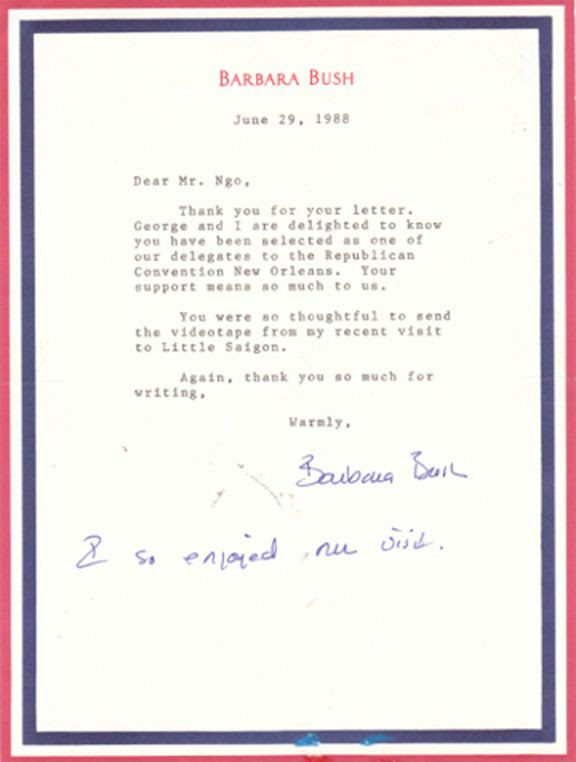 BARBARA BUSH
June 29, 1988
Dear Mr. Ngo,
Thank you for your letter.
George and I are delighted to know
you have been selected as one of
our delegates to the Republican
Convention New Orleans. Your
support means so much to us.
You were so thoughtful to send
the videotape from my recent visit
to Little Saigon.
Again, thank you so much for
writing,
Warmly,
Barbara Bush
I so enjoyed visit.